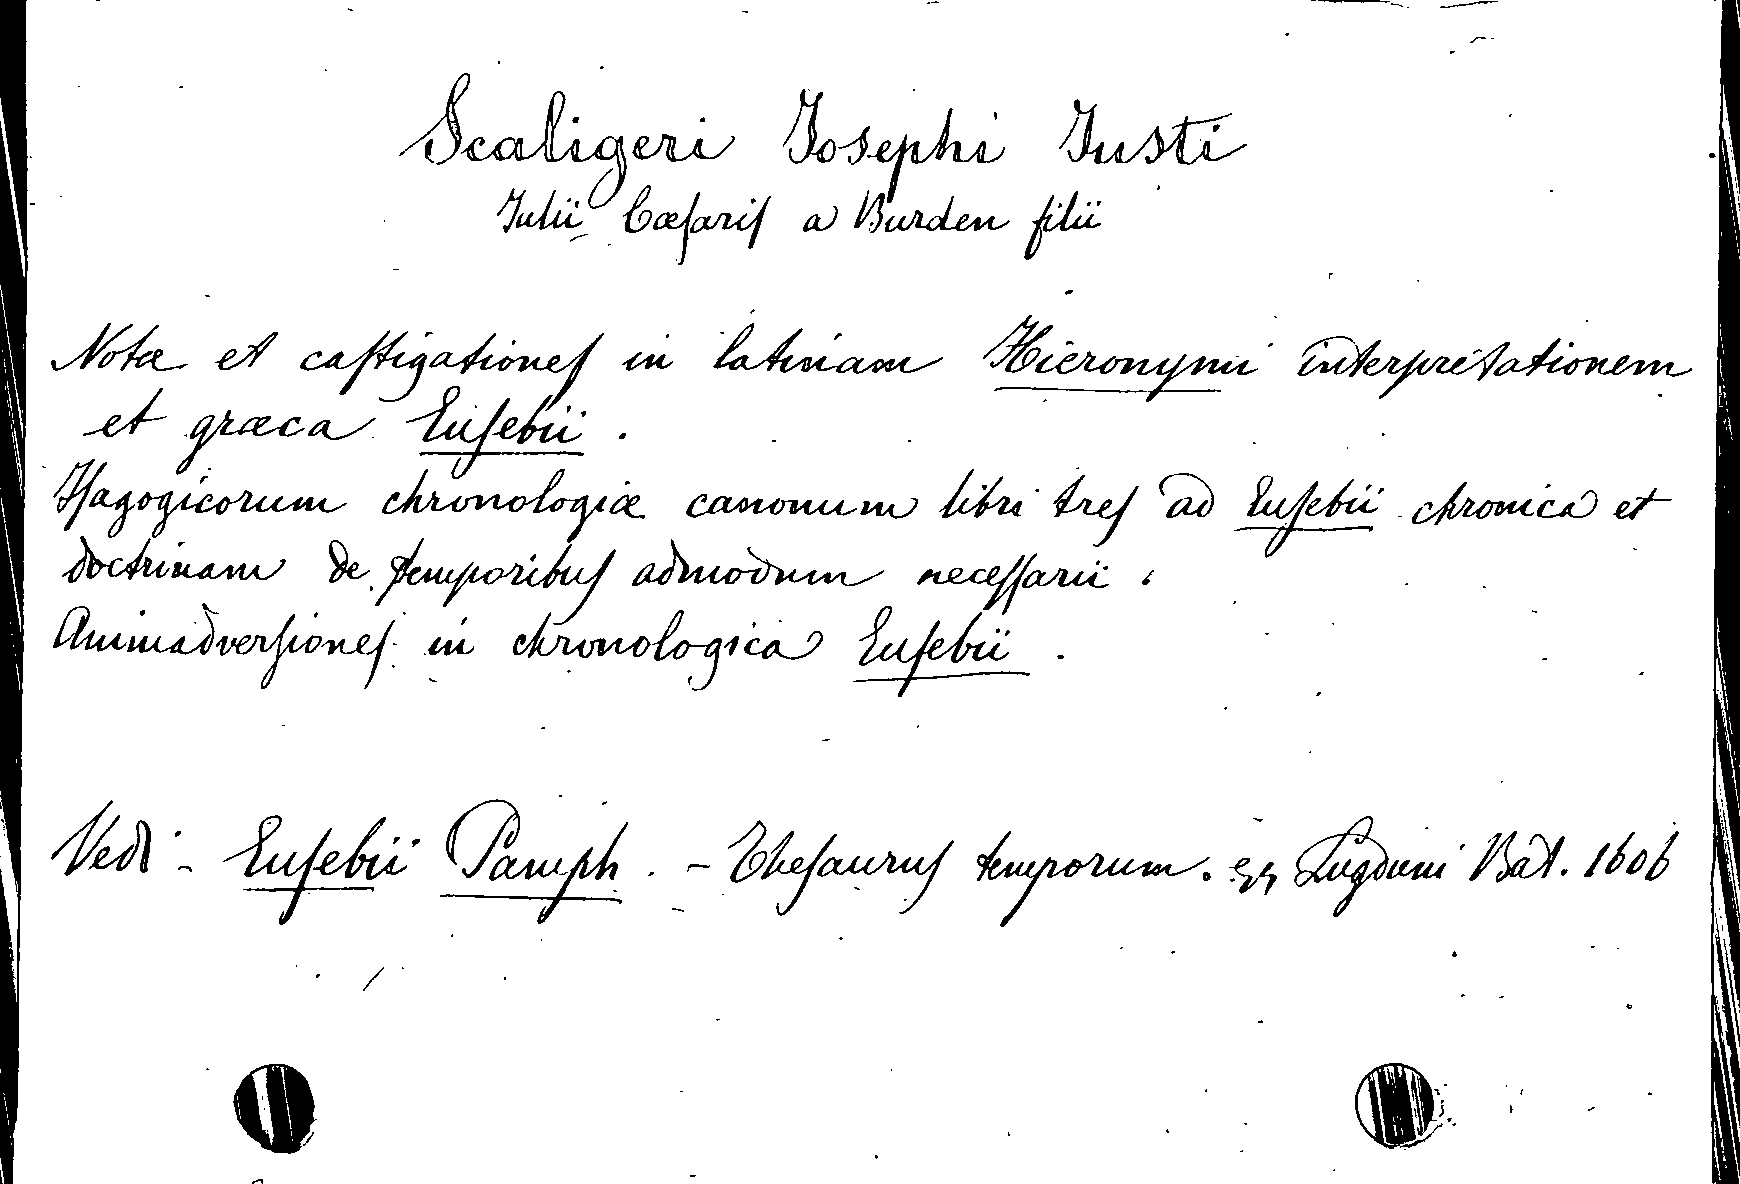 Scaligeri Josephi Justi
Julii Cæſariſ a Burden filii
Notæ et caſtigationeſ in latinam Hieronymi interpretationem
et græca Euſebii.
Iſagogicorum chronologiæ canonum libri treſ ad Euſebii chronica et
doctrinam de temporibuſ admodum neceſſarii.
Animadverſioneſ in chronologica Euſebii.
Vedi - Euſebii Pamph. - Theſauruſ temporum. Lugduni Bat. 1606